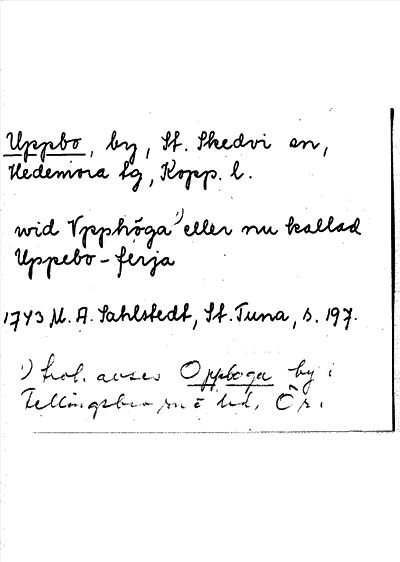 Uppbo, by, St. Skedvi sn,
Hedemora tg, Kopp. l.
wid Vpphöga¹) eller nu kallad
Uppebo-ferja
1743 M. A. Sahlstedt, St. Tuna, s. 197.
¹) trol. avses Oppboga by i
Fellingsbro